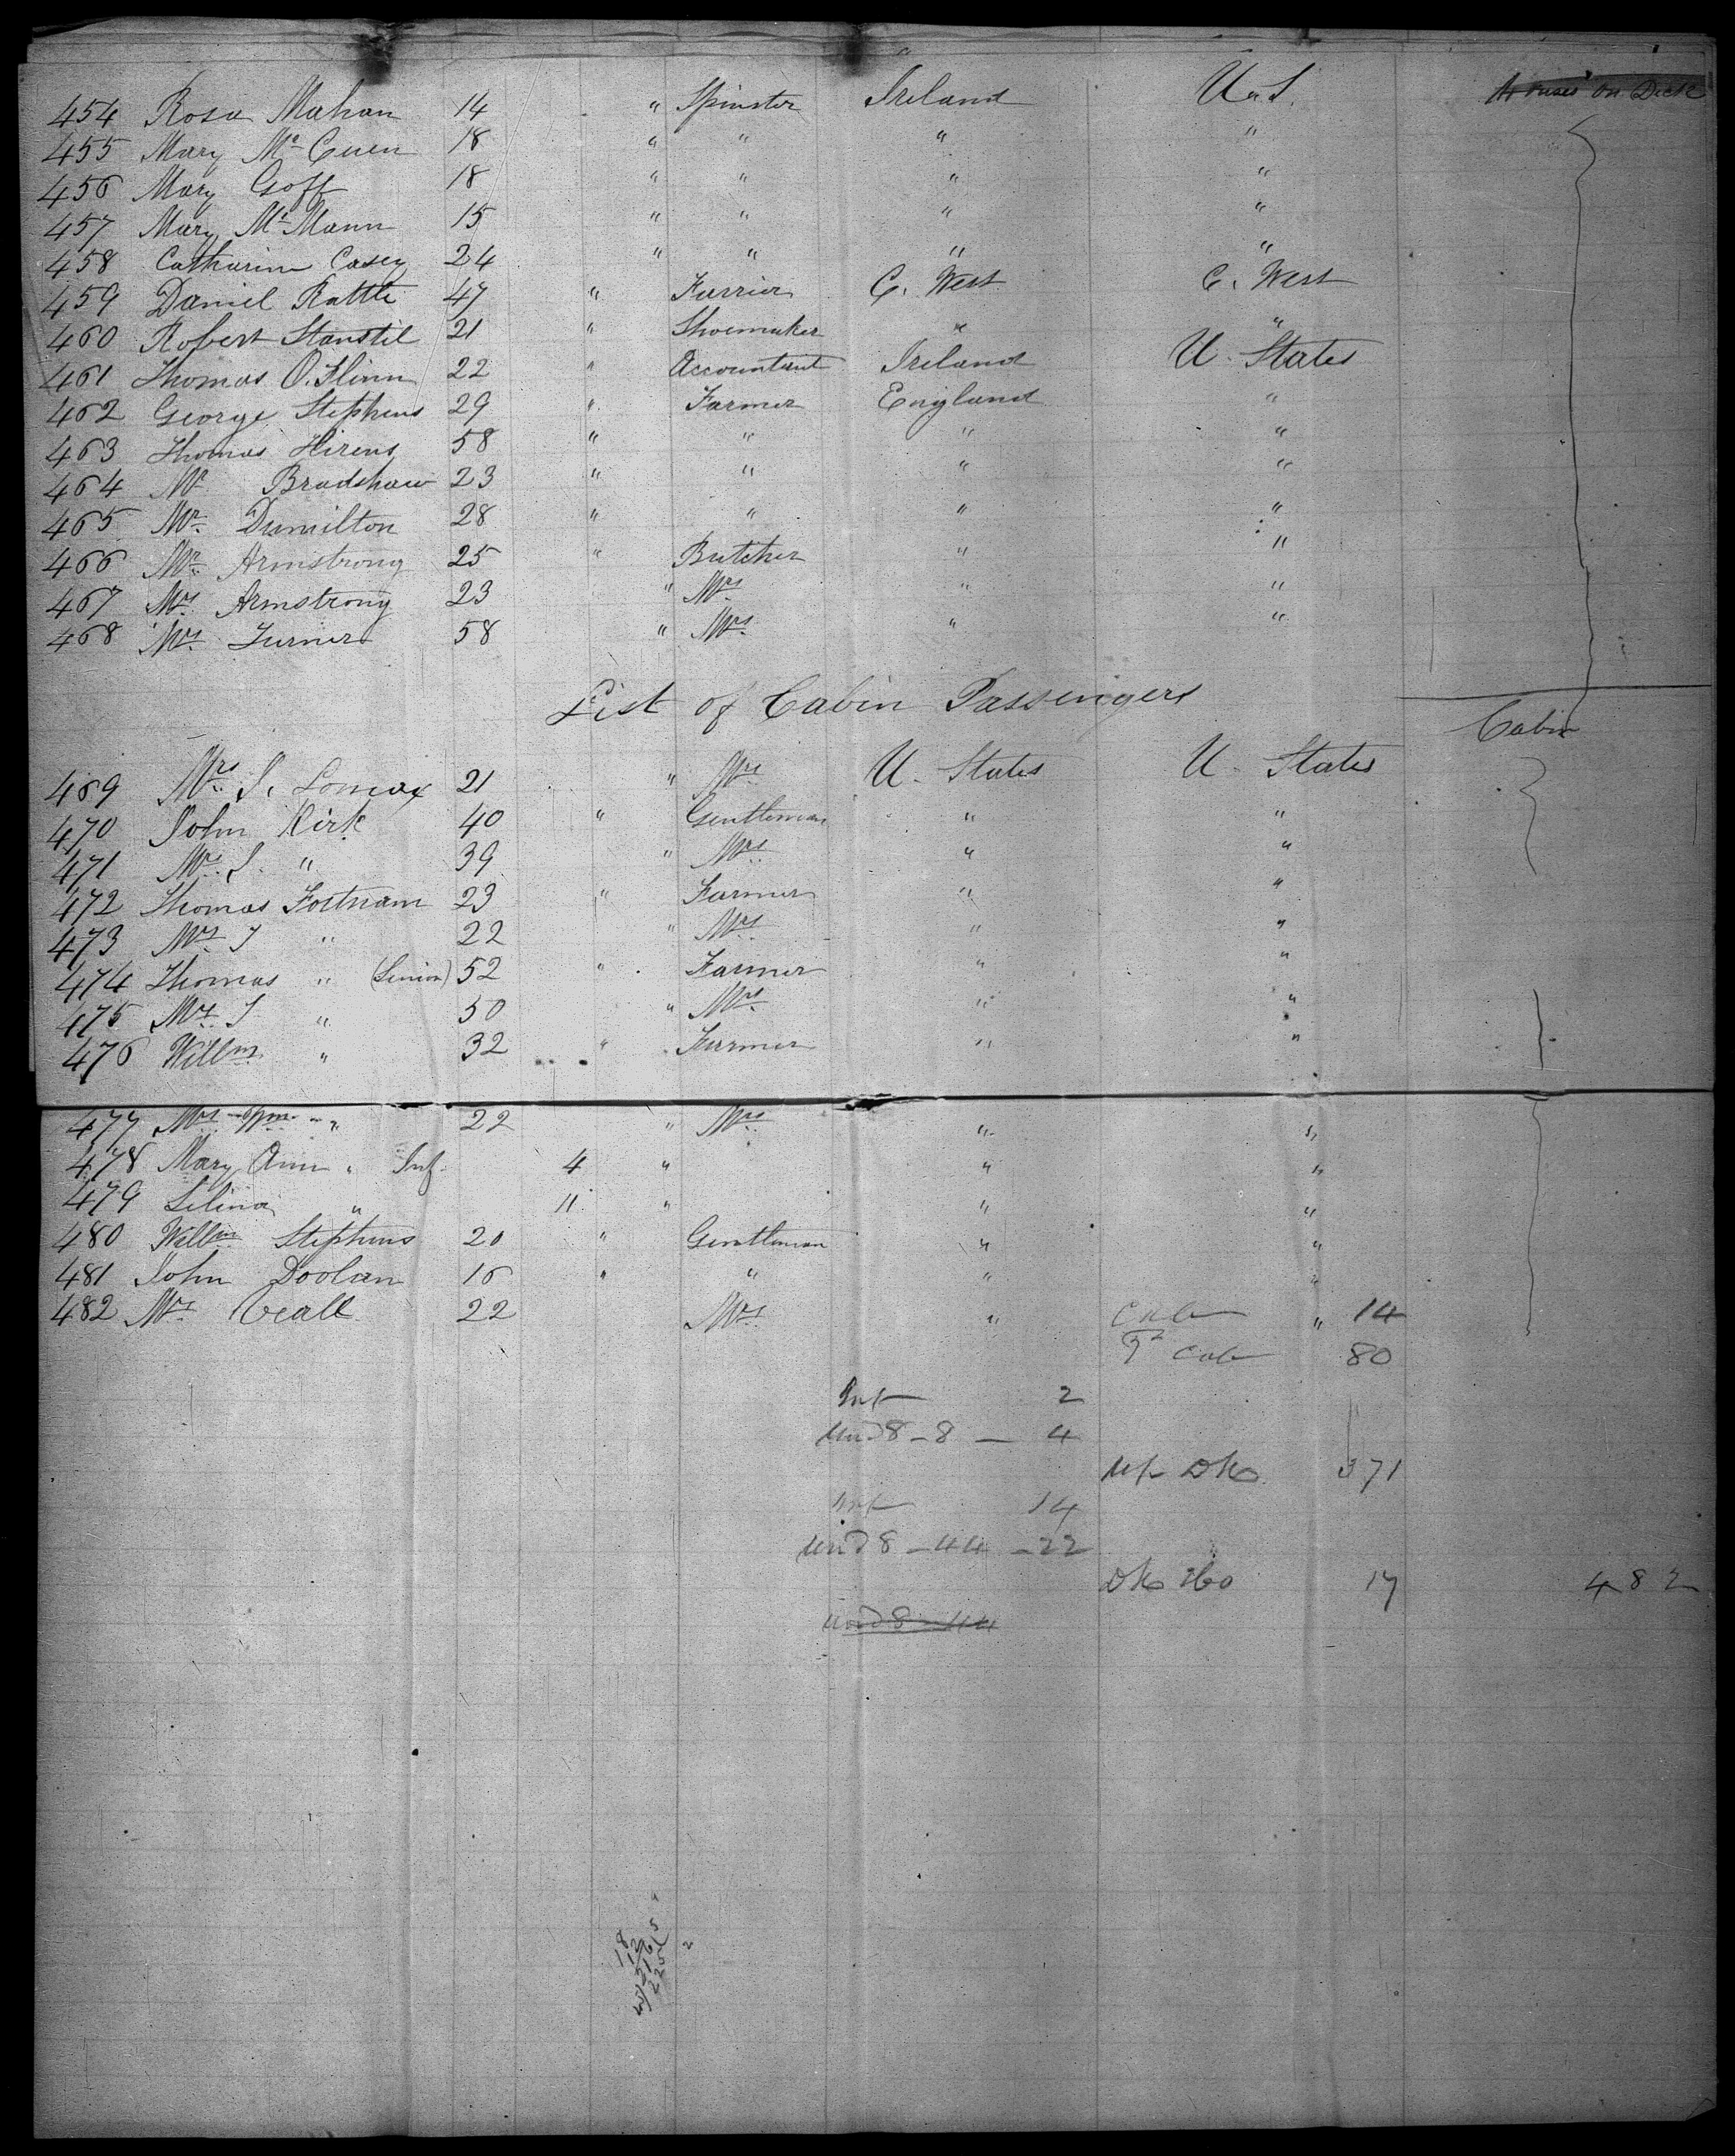 454 Rosa Mahan 14 " Spinster Ireland U.S. Houses on Deck
455 Mary Mc Cuen 18 " " " "
456 Mary Goff 18 " " " "
457 Mary Mc Mann 15 " " " "
458 Catharine Casey 24 " " " "
459 Daniel Rattle 47 " Farrier C. West C. West
460 Robert Stanstil 21 " Shoemaker " "
461 Thomas O.Flinn 22 " Accountant Ireland U. States
462 George Stephens 29 " Farmer England "
463 Thomas Hirens 58 " " " "
464 Mr Bradshaw 23 " " " "
465 Mr. Dumilton 28 " " " "
466 Mr. Armstrong 25 " Butcher " "
467 Mrs. Armstrong 23 " Mrs. " "
468 Mrs. Turner 58 " Mrs. " "
List of Cabin Passengers
Cabin
469 Mrs. S. Lomax 21 " Mrs U. States U. States
470 John Kirk 40 " Gentleman " "
471 Mrs. J. " 39 " Mrs " "
472 Thomas Fortnam 23 " Farmer " "
473 Mrs. T " 22 " Mrs. " "
474 Thomas " (Senior) 52 " Farmer " "
475 Mrs. T " 50 " Mrs. " "
476 Willm " 32 " Farmer " "
477 Mrs. Wm. " 22 " Mrs. " "
478 Mary Ann " Inf. 4 " " "
479 Selina " 11 " " "
480 Willm Stephens 20 " Gentleman " "
481 John Doolan 16 " " " "
482 Mrs Veall 22 Mrs. " "
Cab 14
2 Cab 80
Inf 2
Und 8 - 8 - 4
Up Dk 371
Inf 14
Und 8 - 44 - 22
Dk Ho 17 482
Und 8 44